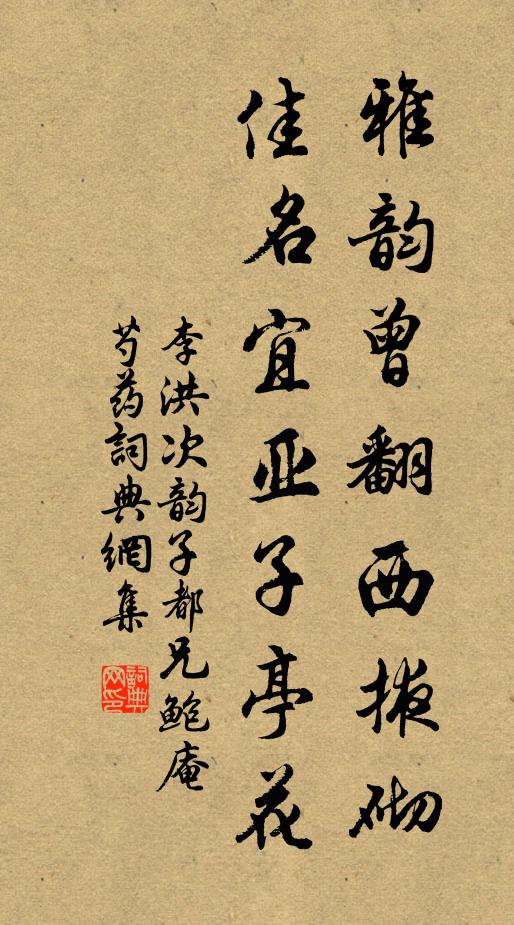 雅韵曾翻西掖砌
佳名宜亚子亭花
李洪次韵子都兄鲍庵
芍药詞典網集
詞典网印